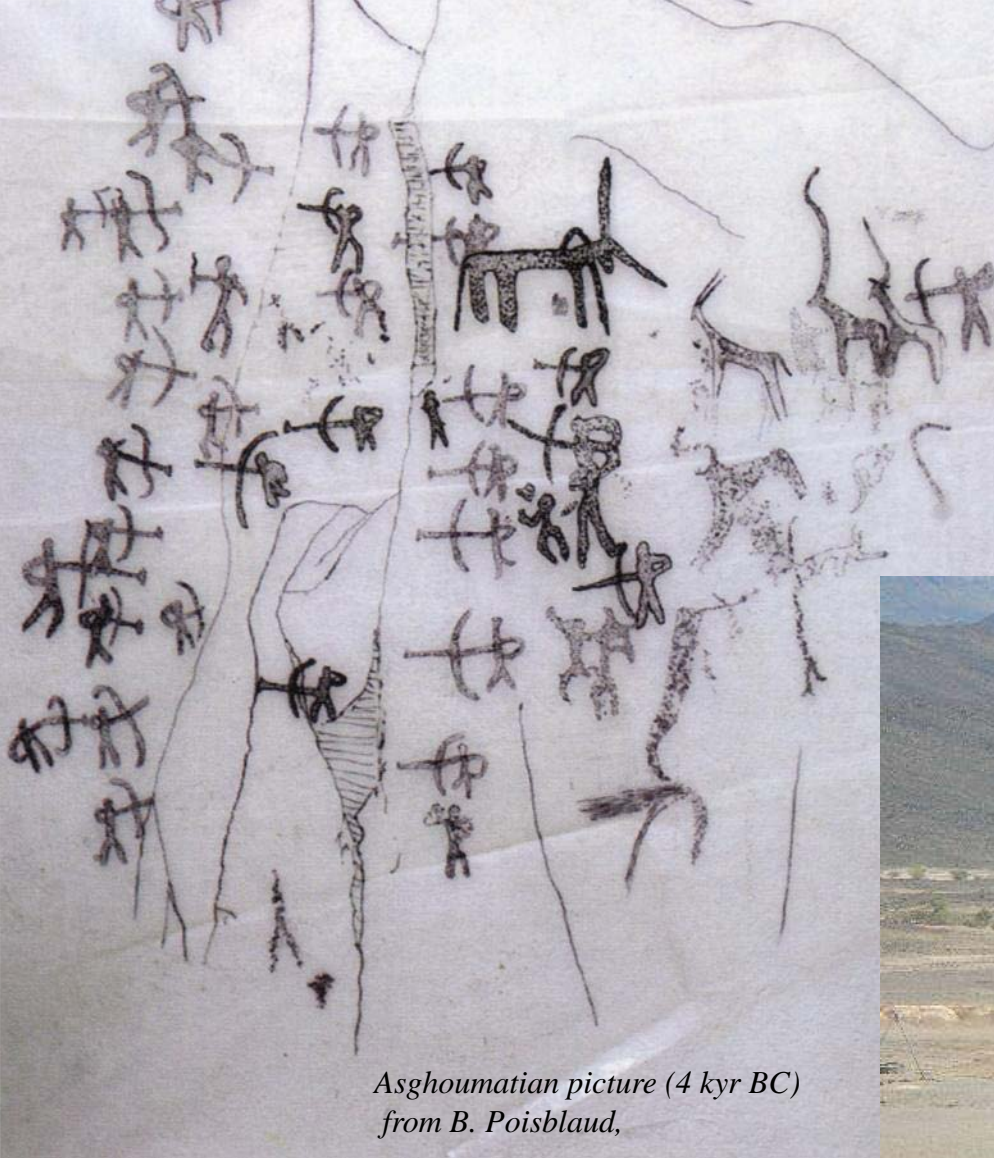 Asghoumatian picture (4 kyr BC)
from B. Poisblaud,